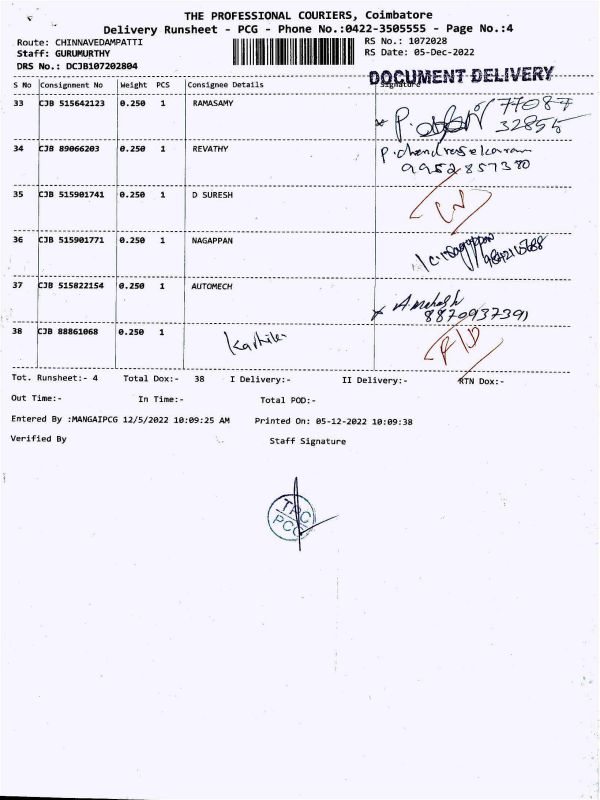 THE PROFESSIONAL COURIERS, Coimbatore
Delivery Runsheet - PCG - Phone No.:0422-3505555 - Page No.:4
Route: CHINNAVEDAMPATTI RS No.: 1072028
Staff: GURUMURTHY RS Date: 05-Dec-2022
DRS No.: DCJB107202804
DOCUMENT DELIVERY
S No Consignment No Weight PCS Consignee Details Signature
33 CJB 515642123 0.250 1 RAMASAMY 77087
32855
34 CJB 89066203 0.250 1 REVATHY P. chandrasekaran
9952857380
35 CJB 515901741 0.250 1 D SURESH
36 CJB 515901771 0.250 1 NAGAPPAN
37 CJB 515822154 0.250 1 AUTOMECH A. mahesh
8870937391
38 CJB 88861068 0.250 1
Tot. Runsheet:- 4 Total Dox:- 38 I Delivery:- II Delivery:- RTN Dox:-
Out Time:- In Time:- Total POD:-
Entered By :MANGAIPCG 12/5/2022 10:09:25 AM Printed On: 05-12-2022 10:09:38
Verified By Staff Signature
TPC
PCG